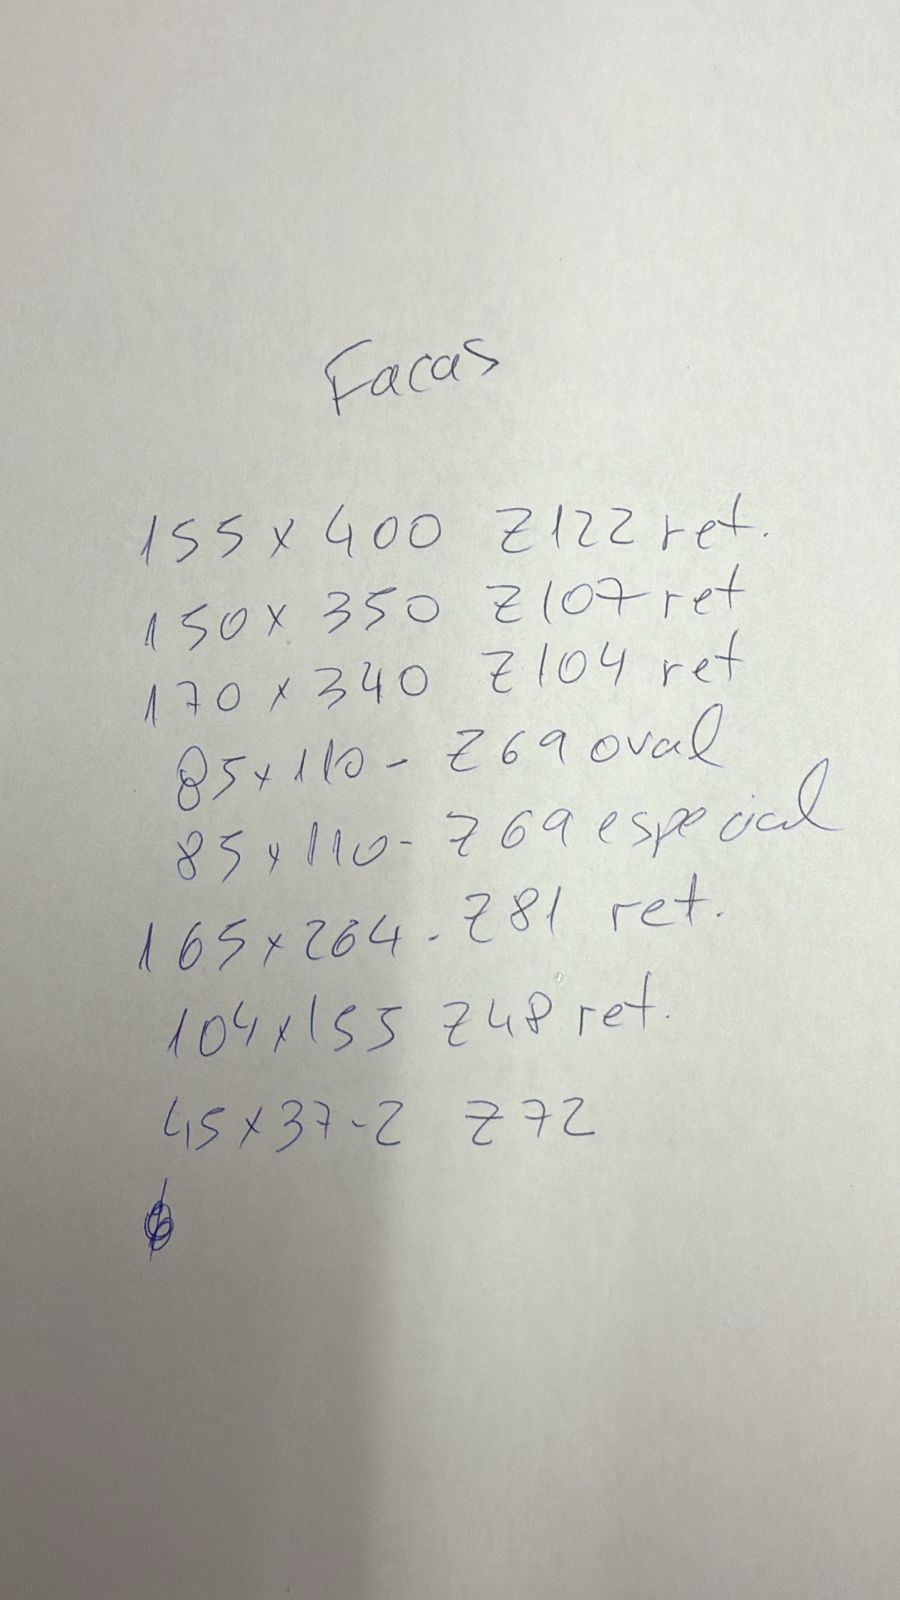 Facas
155 x 400 Z122 ret.
150 x 350 Z107 ret
170 x 340 Z104 ret
85 x 110 - Z69 oval
85 x 110 - Z69 especial
165 x 264 - Z81 ret.
104 x 155 Z48 ret.
45 x 37-2 Z72